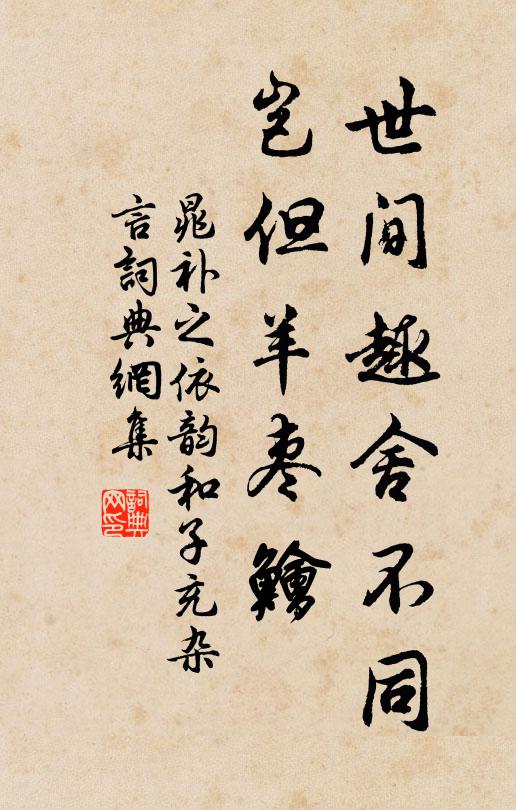 世間趣舍不同
豈但羊枣鱠
晁补之依韵和子充杂
言詞典網集
詞典
网印